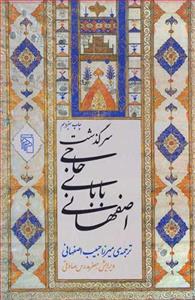 چاپ سوم
سرگذشت
حاجی
بابای
اصفهانی
ترجمه‌ی میرزا حبیب اصفهانی
ویرایش جعفر مدرس صادقی